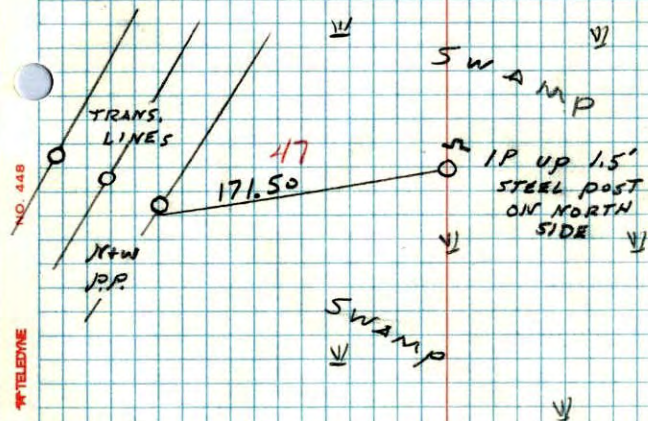 SWAMP
TRANS.
LINES
47
171.50
IP UP 1.5'
STEEL POST
ON NORTH
SIDE
N+W
P.P.
SWAMP
NO. 448
TELEDYNE